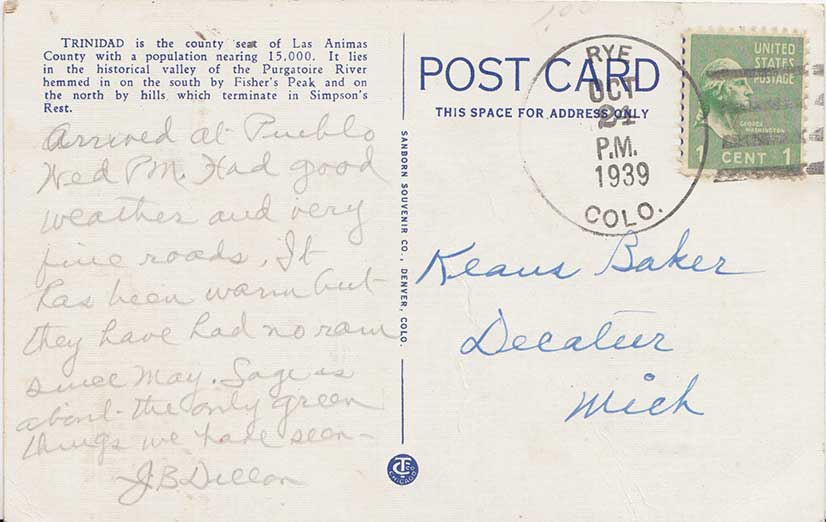 TRINIDAD is the county seat of Las Animas
County with a population nearing 15,000. It lies
in the historical valley of the Purgatoire River
hemmed in on the south by Fisher's Peak and on
the north by hills which terminate in Simpson's
Rest.
Arrived at Pueblo
Wed PM. Had good
weather and very
fine roads. It
has been warm but
they have had no rain
since May. Sage is
about the only green
things we have seen—
J B Dillon
SANBORN SOUVENIR CO., DENVER, COLO.
CT CO
CHICAGO
POST CARD
THIS SPACE FOR ADDRESS ONLY
RYE
OCT
24
P.M.
1939
COLO.
UNITED
STATES
POSTAGE
GEORGE
WASHINGTON
1 CENT 1
Keans Baker
Decatur
Mich